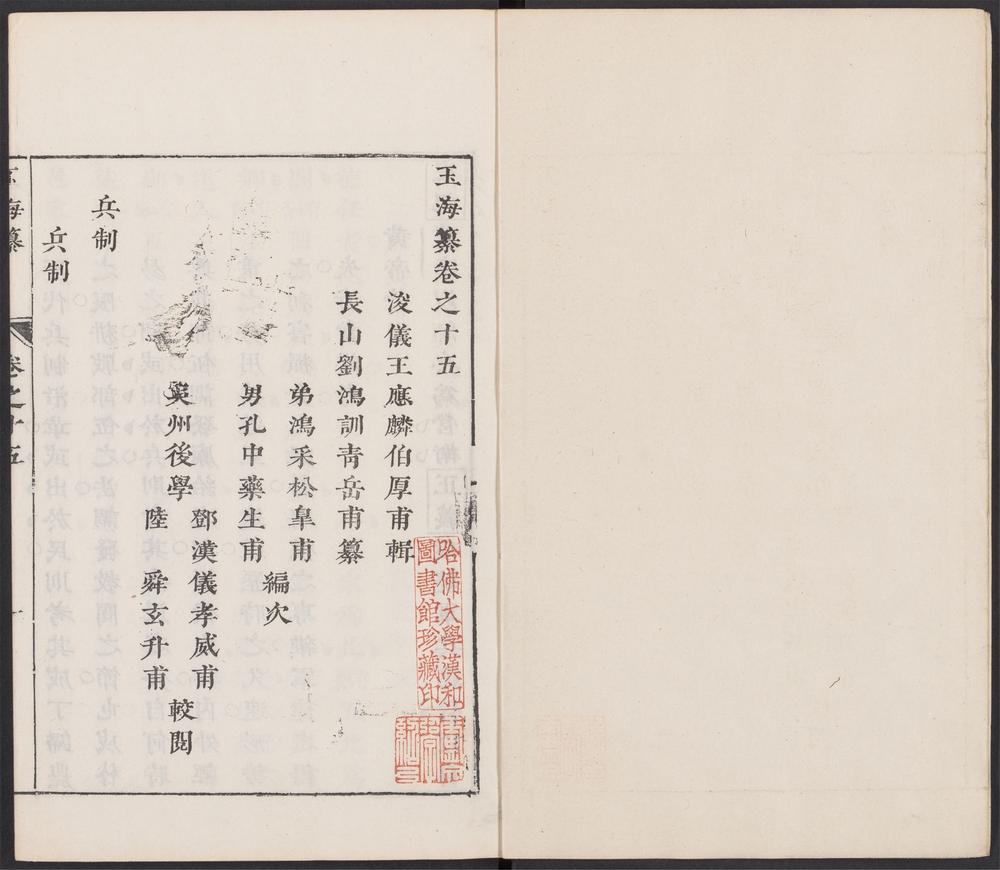 玉海纂卷之十五
浚儀王應麟伯厚甫輯
長山劉鴻訓青岳甫纂
弟鴻采松皐甫
男孔中藥生甫
編次
吳州後學
鄧漢儀孝威甫
陸舜玄升甫
較閱
兵制
兵制
玉海纂
卷之十五
一
哈佛大學漢和
圖書館珍藏印